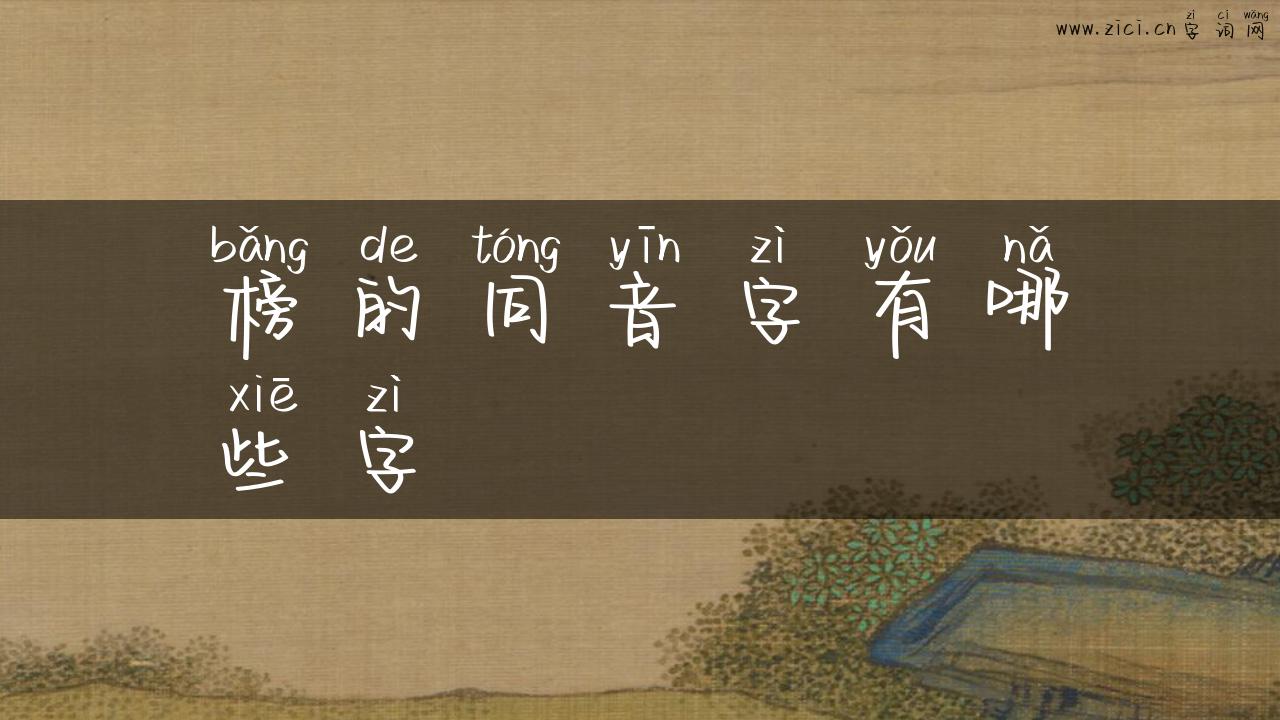 zì cí wǎng
www.zici.cn 字词网
bǎng de tóng yīn zì yǒu nǎ
榜的同音字有哪
xiē zì
些字